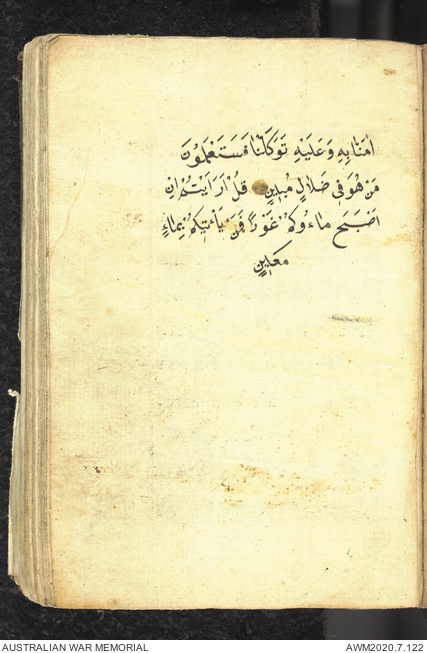 اٰمَنَّا بِهِ وَعَلَيْهِ تَوَكَّلْنَا فَسَتَعْلَمُونَ
مَنْ هُوَ فِى ضَلَالٍ مُبِينٍ قُلْ اَرَاَيْتُمْ اِنْ
اَصْبَحَ مَاءُوكُمْ غَوْرًا فَمَنْ يَأْتِيكُمْ بِمَاءٍ
مَعِينٍ
AUSTRALIAN WAR MEMORIAL AWM2020.7.122